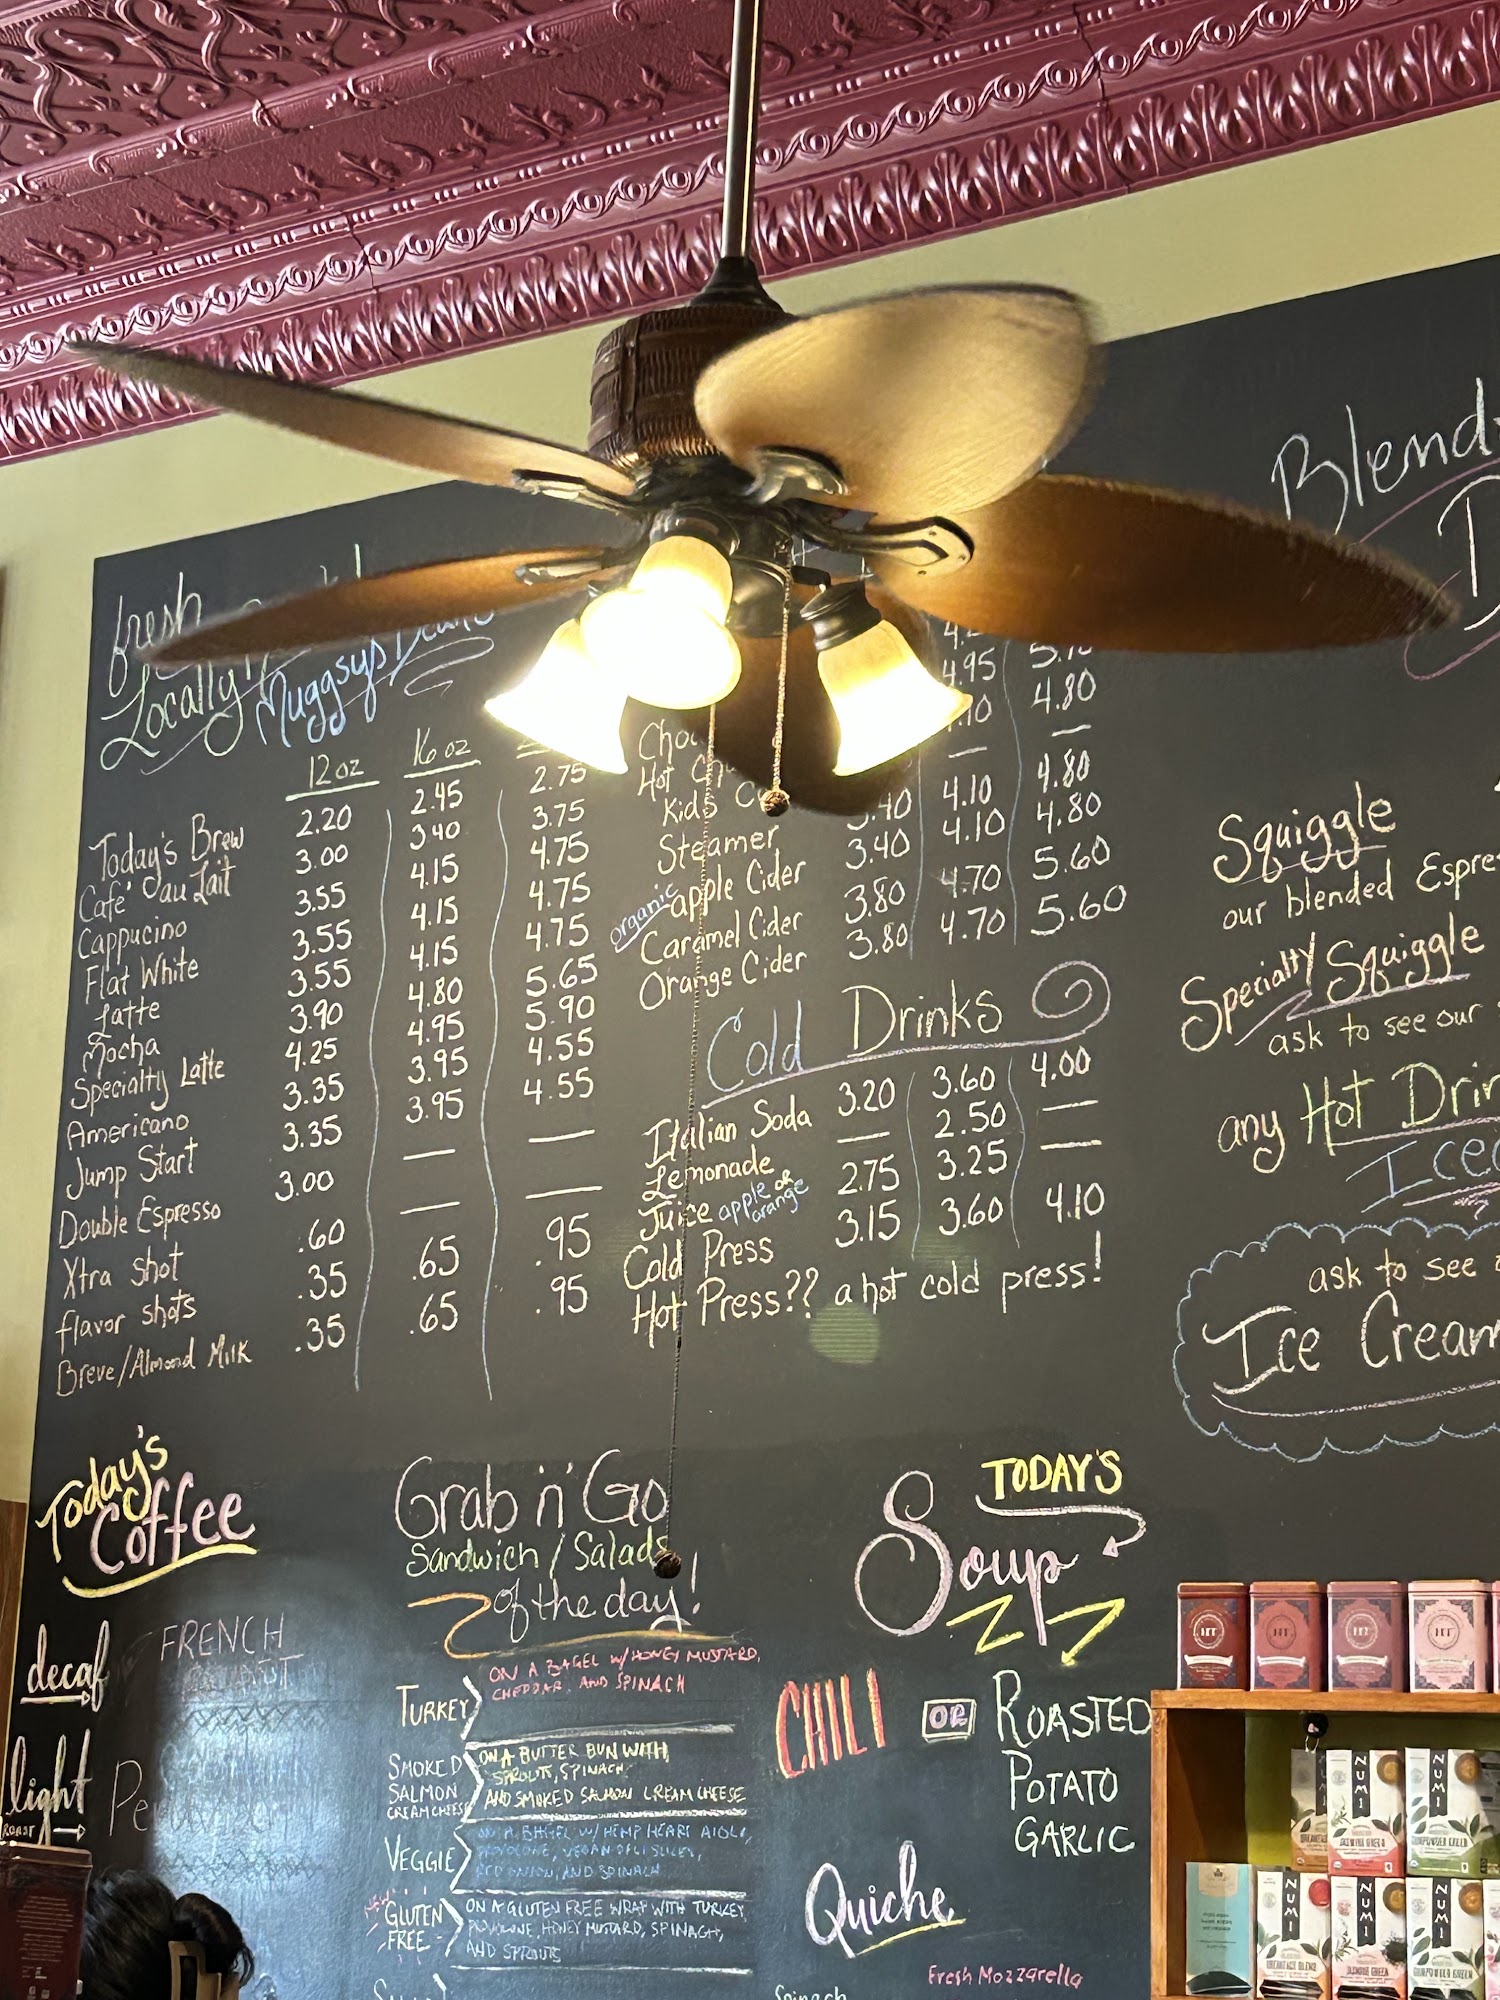 fresh
Locally
Muggsy's Beans
12 oz 16 oz
Today's Brew 2.20 2.45 2.75
Café au Lait 3.00 3.40 3.75
Cappucino 3.55 4.15 4.75
Flat White 3.55 4.15 4.75
Latte 3.55 4.15 4.75
Mocha 3.90 4.80 5.65
Specialty Latte 4.25 4.95 5.90
Americano 3.35 3.95 4.55
Jump Start 3.35 3.95 4.55
Double Espresso 3.00 — —
Xtra shot .60 — —
flavor shots .35 .65 .95
Breve/Almond Milk .35 .65 .95
4.95
Hot 4.80
Kids — —
Steamer 3.40 4.10 4.80
organic apple Cider 3.40 4.10 4.80
Caramel Cider 3.80 4.70 5.60
Orange Cider 3.80 4.70 5.60
Cold Drinks
Italian Soda 3.20 3.60 4.00
Lemonade — 2.50 —
Juice apple or orange 2.75 3.25 —
Cold Press 3.15 3.60 4.10
Hot Press?? a hot cold press!
Blend
Squiggle
our blended Espre
Specialty Squiggle
ask to see our
any Hot Drin
Iced
ask to see
Ice Cream
Today's
Coffee
decaf
FRENCH
light
ROAST
Grab 'n' Go
Sandwich / Salads
of the day!
TURKEY
ON A BAGEL W/ HONEY MUSTARD,
CHEDDAR, AND SPINACH
SMOKED
SALMON
CREAM CHEESE
ON A BUTTER BUN WITH
SPROUTS, SPINACH
AND SMOKED SALMON CREAM CHEESE
VEGGIE
ON A BAGEL W/ HEMP HEART AIOLI,
PROVOLONE, VEGAN DELI SLICES,
RED ONION, AND SPINACH
NEW
GLUTEN
FREE
ON A GLUTEN FREE WRAP WITH TURKEY,
PROVOLONE, HONEY MUSTARD, SPINACH,
AND SPROUTS
TODAY'S
Soup
CHILI OR ROASTED
POTATO
GARLIC
Quiche
Fresh Mozzarella
Spinach
NUMI
NUMI
NUMI
NUMI
NUMI
BREAKFAST BLEND
JASMINE GREEN
GUNPOWDER GREEN